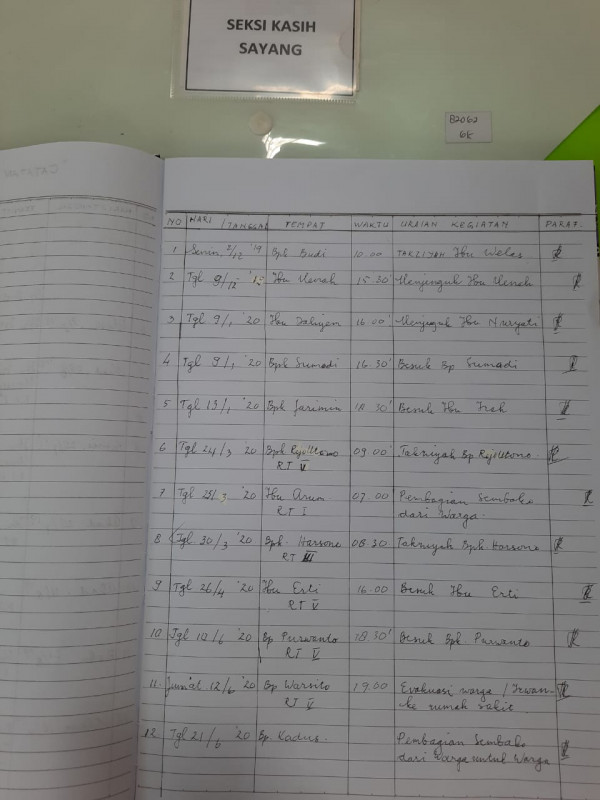 SEKSI KASIH
SAYANG
82062
6k
NO HARI / TANGGAL TEMPAT WAKTU URAIAN KEGIATAN PARAF.
1 Senin, 2/12 '19 Bpk Budi 10.00 TAKZIYAH Ibu Welas
2 Tgl 9/12 Ibu 15 30' Menjenguk Ibu
3 Tgl 9/1 '20 Ibu 16 00' Menjenguk Ibu Nuryati
4 Tgl 9/1 '20 Bpk Sumadi 16 30' Besuk Bp Sumadi
5 Tgl 13/1 '20 Bpk Jarimin 18 30' Besuk Ibu
6 Tgl 24/3 '20 Bpk Rejo Utomo 09 00' Takziyah Bp Rejo Utomo
RT V
7 Tgl 25/3 '20 Ibu Arum 07.00 Pembagian Sembako
RT I dari Warga.
8 Tgl 30/3 '20 Bpk. Harsono 08 30 Takziyah Bpk Harsono
RT III
9 Tgl 26/4 '20 Ibu Erti 16.00 Besuk Ibu Erti
RT V
10 Tgl 10/6 '20 Bp Purwanto 18.30' Besuk Bpk Purwanto
RT V
11. Jum'at 12/6 '20 Bp Warsito 19.00 Evakuasi warga / Irwan
RT V ke rumah sakit
12 Tgl 21/6 '20 Bp. Kadus. Pembagian Sembako
dari Warga untuk Warga